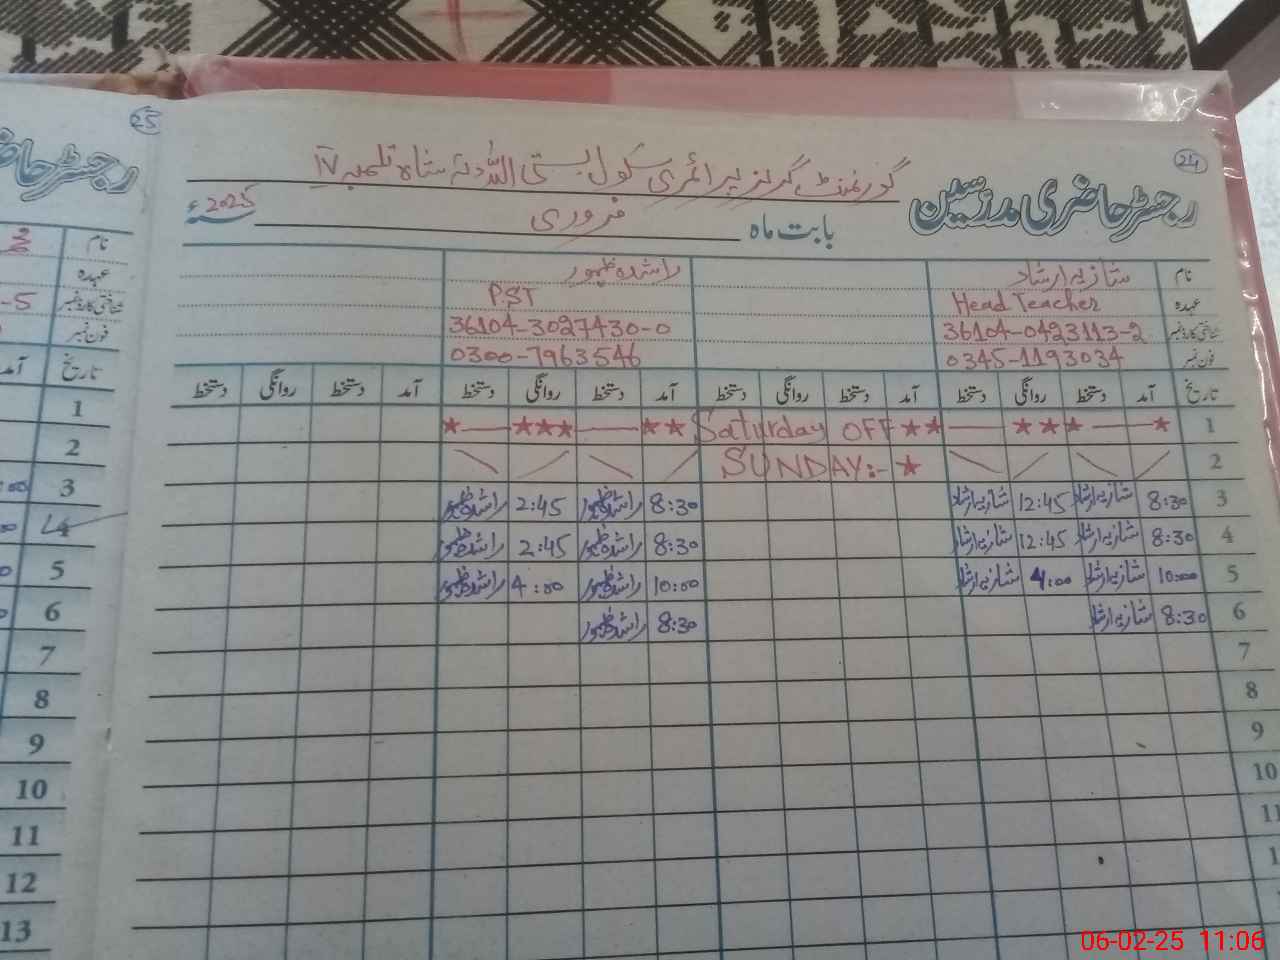 25
24
رجسٹر حاضری مدرسین
گورنمنٹ گرلز پرائمری سکول بستی اللہ دتہ شاہ تلمبہ IV
بابت ماہ فروری 2025ء
نام شازیہ ارشاد راشدہ ظہور
عہدہ Head Teacher PST
شناختی کارڈ نمبر 36104-0423113-2 36104-3027430-0
فون نمبر 0345-1193034 0300-7963546
تاریخ آمد دستخط روانگی دستخط آمد دستخط روانگی دستخط آمد دستخط روانگی دستخط آمد دستخط روانگی دستخط
1 ★ — ★★★ — ★★ Saturday OFF ★★ — ★★★ — ★
2 SUNDAY:- ★
3 8:30 شازیہ ارشاد 12:45 شازیہ ارشاد 8:30 راشدہ ظہور 2:45 راشدہ ظہور
4 8:30 شازیہ ارشاد 12:45 شازیہ ارشاد 8:30 راشدہ ظہور 2:45 راشدہ ظہور
5 10:00 شازیہ ارشاد 4:00 شازیہ ارشاد 10:00 راشدہ ظہور 4:00 راشدہ ظہور
6 8:30 شازیہ ارشاد 8:30 راشدہ ظہور
7
8
9
10
11
نام
عہدہ
شناختی کارڈ نمبر
فون نمبر
تاریخ آمد
1
2
3
4
5
6
7
8
9
10
11
12
13
06-02-25 11:06